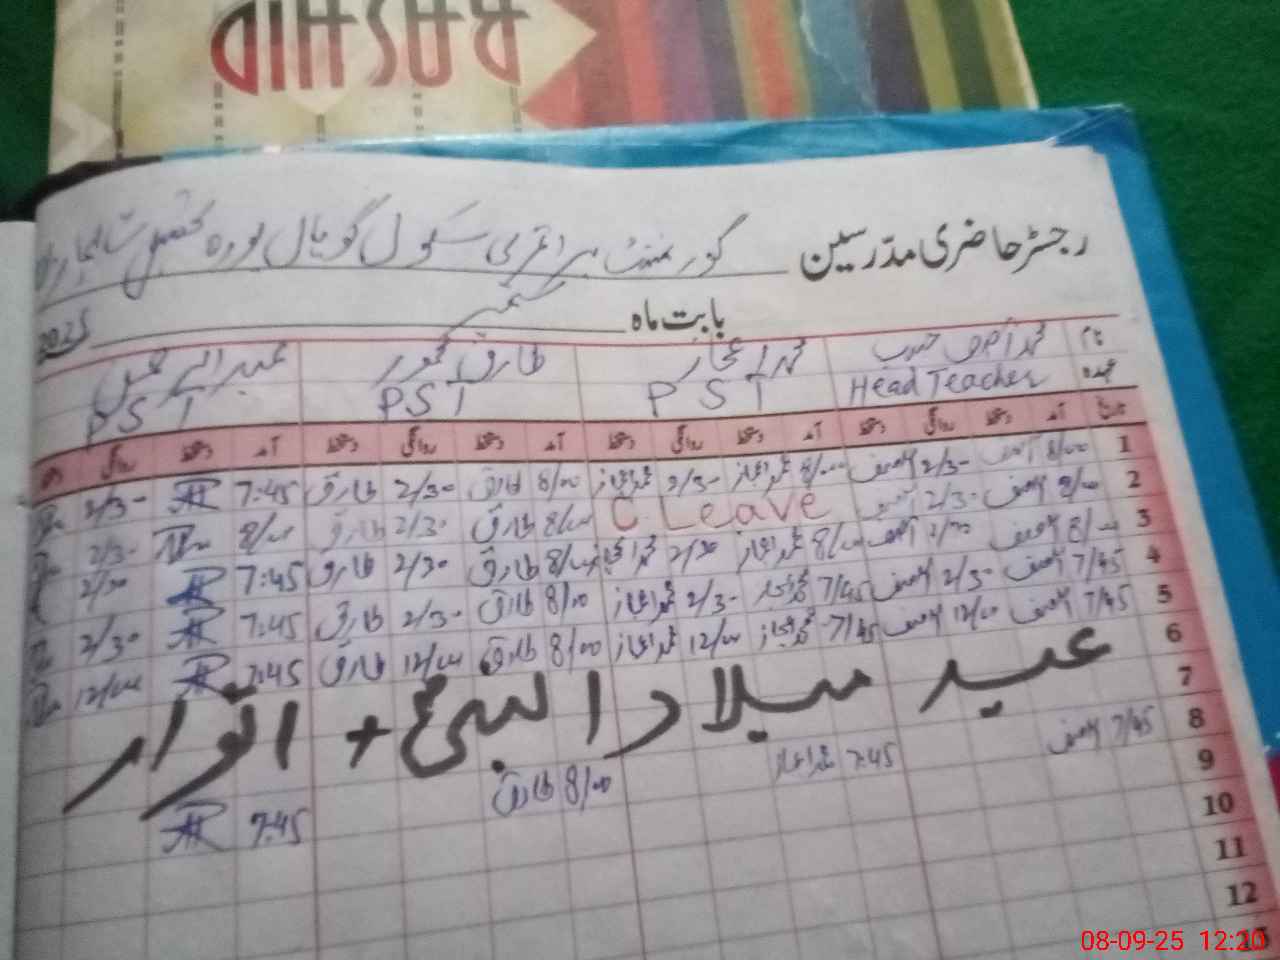 RASHID
رجسٹر حاضری مدرسین گورنمنٹ پرائمری سکول گوپال پورہ
بابت ماہ ستمبر 2025
نام محمد آصف محمد اعجاز طارق محمود
عہدہ Head Teacher PST PST PST
تاریخ آمد دستخط روانگی دستخط آمد دستخط روانگی دستخط آمد دستخط روانگی دستخط آمد دستخط روانگی
1 8/00 2/30 8/00 محمد اعجاز 2/30 محمد اعجاز 8/00 طارق 2/30 طارق 7:45 AR 2/30
2 8/00 آصف 2/30 C Leave 8/00 طارق 2/30 طارق 8/00 2/30
3 8/00 آصف 2/30 آصف 8/00 محمد اعجاز 2/30 محمد اعجاز 8/00 طارق 2/30 طارق 7:45 AR 2/30
4 7/45 آصف 2/30 آصف 7/45 محمد اعجاز 2/30 محمد اعجاز 8/00 طارق 2/30 طارق 7:45 AR 2/30
5 7/45 آصف 12/00 آصف 7/45 محمد اعجاز 12/00 محمد اعجاز 8/00 طارق 12/00 طارق 7:45 AR 12/00
6 عید میلاد النبی + اتوار
7
8 7/45 آصف 7:45 محمد اعجاز 8/00 طارق 7:45 AR
9
10
11
12
13
08-09-25 12:20